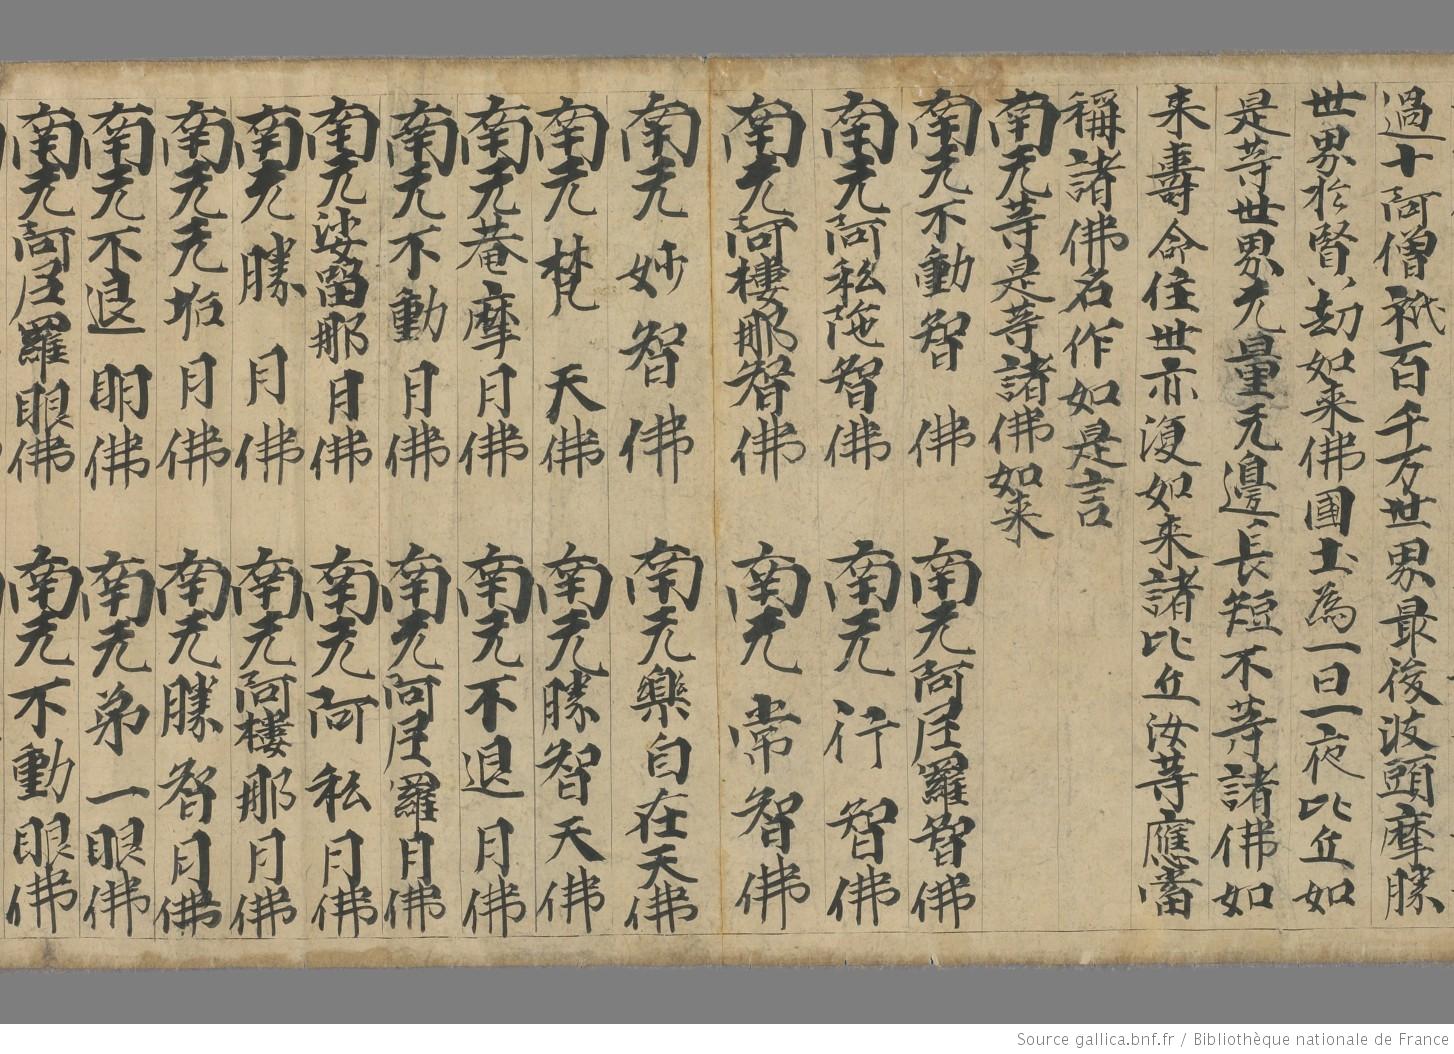 過十阿僧祇百千万世界最後波頭摩勝
世界於賢劫如来佛國土為一日一夜比丘如
是等世界无量无邊長短不等諸佛如
来壽命住世亦復如来諸比丘汝等應當
稱諸佛名作如是言
南无等是等諸佛如来
南无不動智佛 南无阿𡰱羅智佛
南无阿私陁智佛 南无行智佛
南无阿樓那智佛 南无常智佛
南无妙智佛 南无樂自在天佛
南无梵天佛 南无勝智天佛
南无菴摩月佛 南无不退月佛
南无不動月佛 南无阿𡰱羅月佛
南无娑留那月佛 南无阿私月佛
南无勝月佛 南无阿樓那月佛
南无无垢月佛 南无勝智月佛
南无不退眼佛 南无弟一眼佛
南无阿𡰱羅眼佛 南无不動眼佛
Source gallica.bnf.fr / Bibliothèque nationale de France